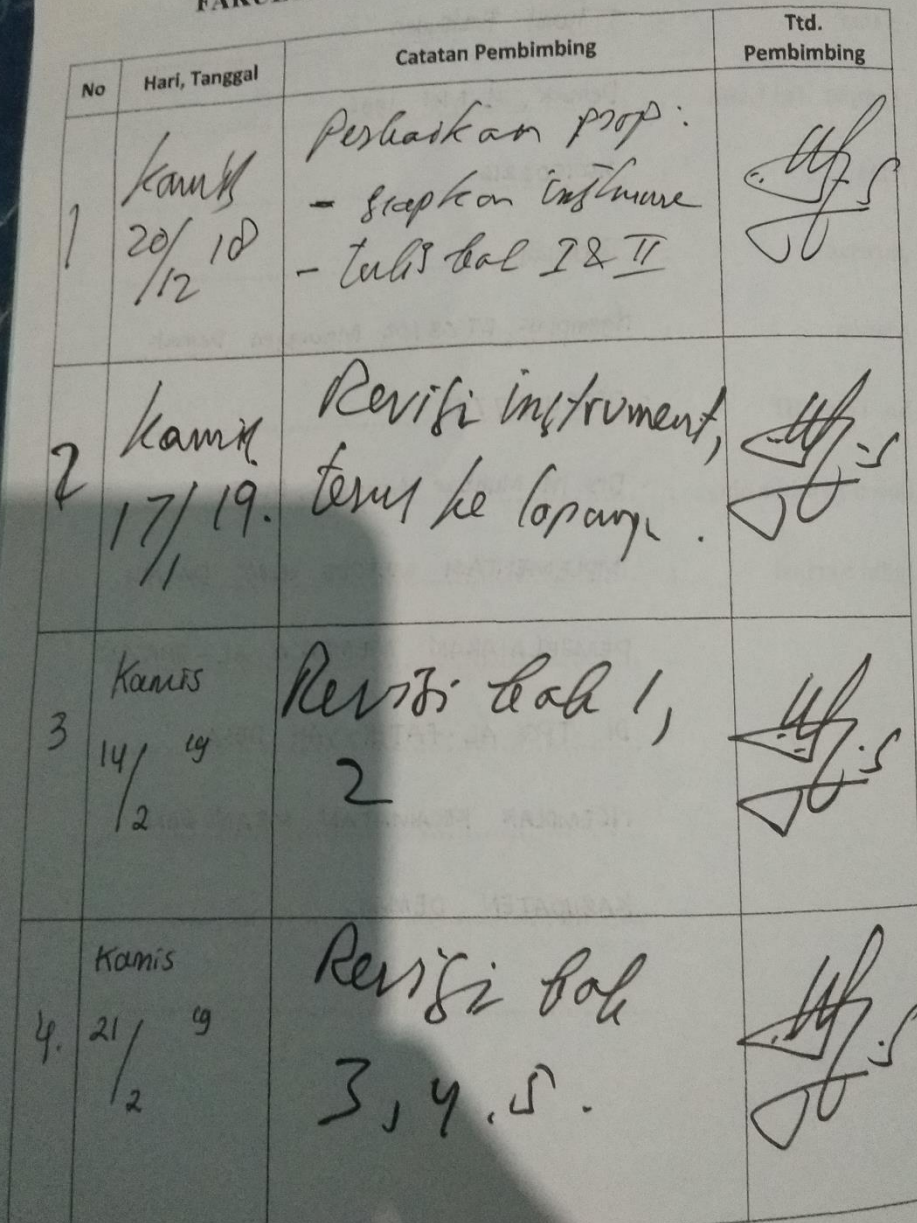 No
Hari, Tanggal
Catatan Pembimbing
Ttd.
Pembimbing
1
Kamis
20/12 18
Perbaikan prop:
- siapkan instrume
- tulis bab I & II
2
Kamis
17/1 19.
Revisi instrument,
terus ke lapang.
3
Kamis
14/2 19
Revisi bab 1,
2
4.
Kamis
21/2 19
Revisi bab
3, 4, 5.